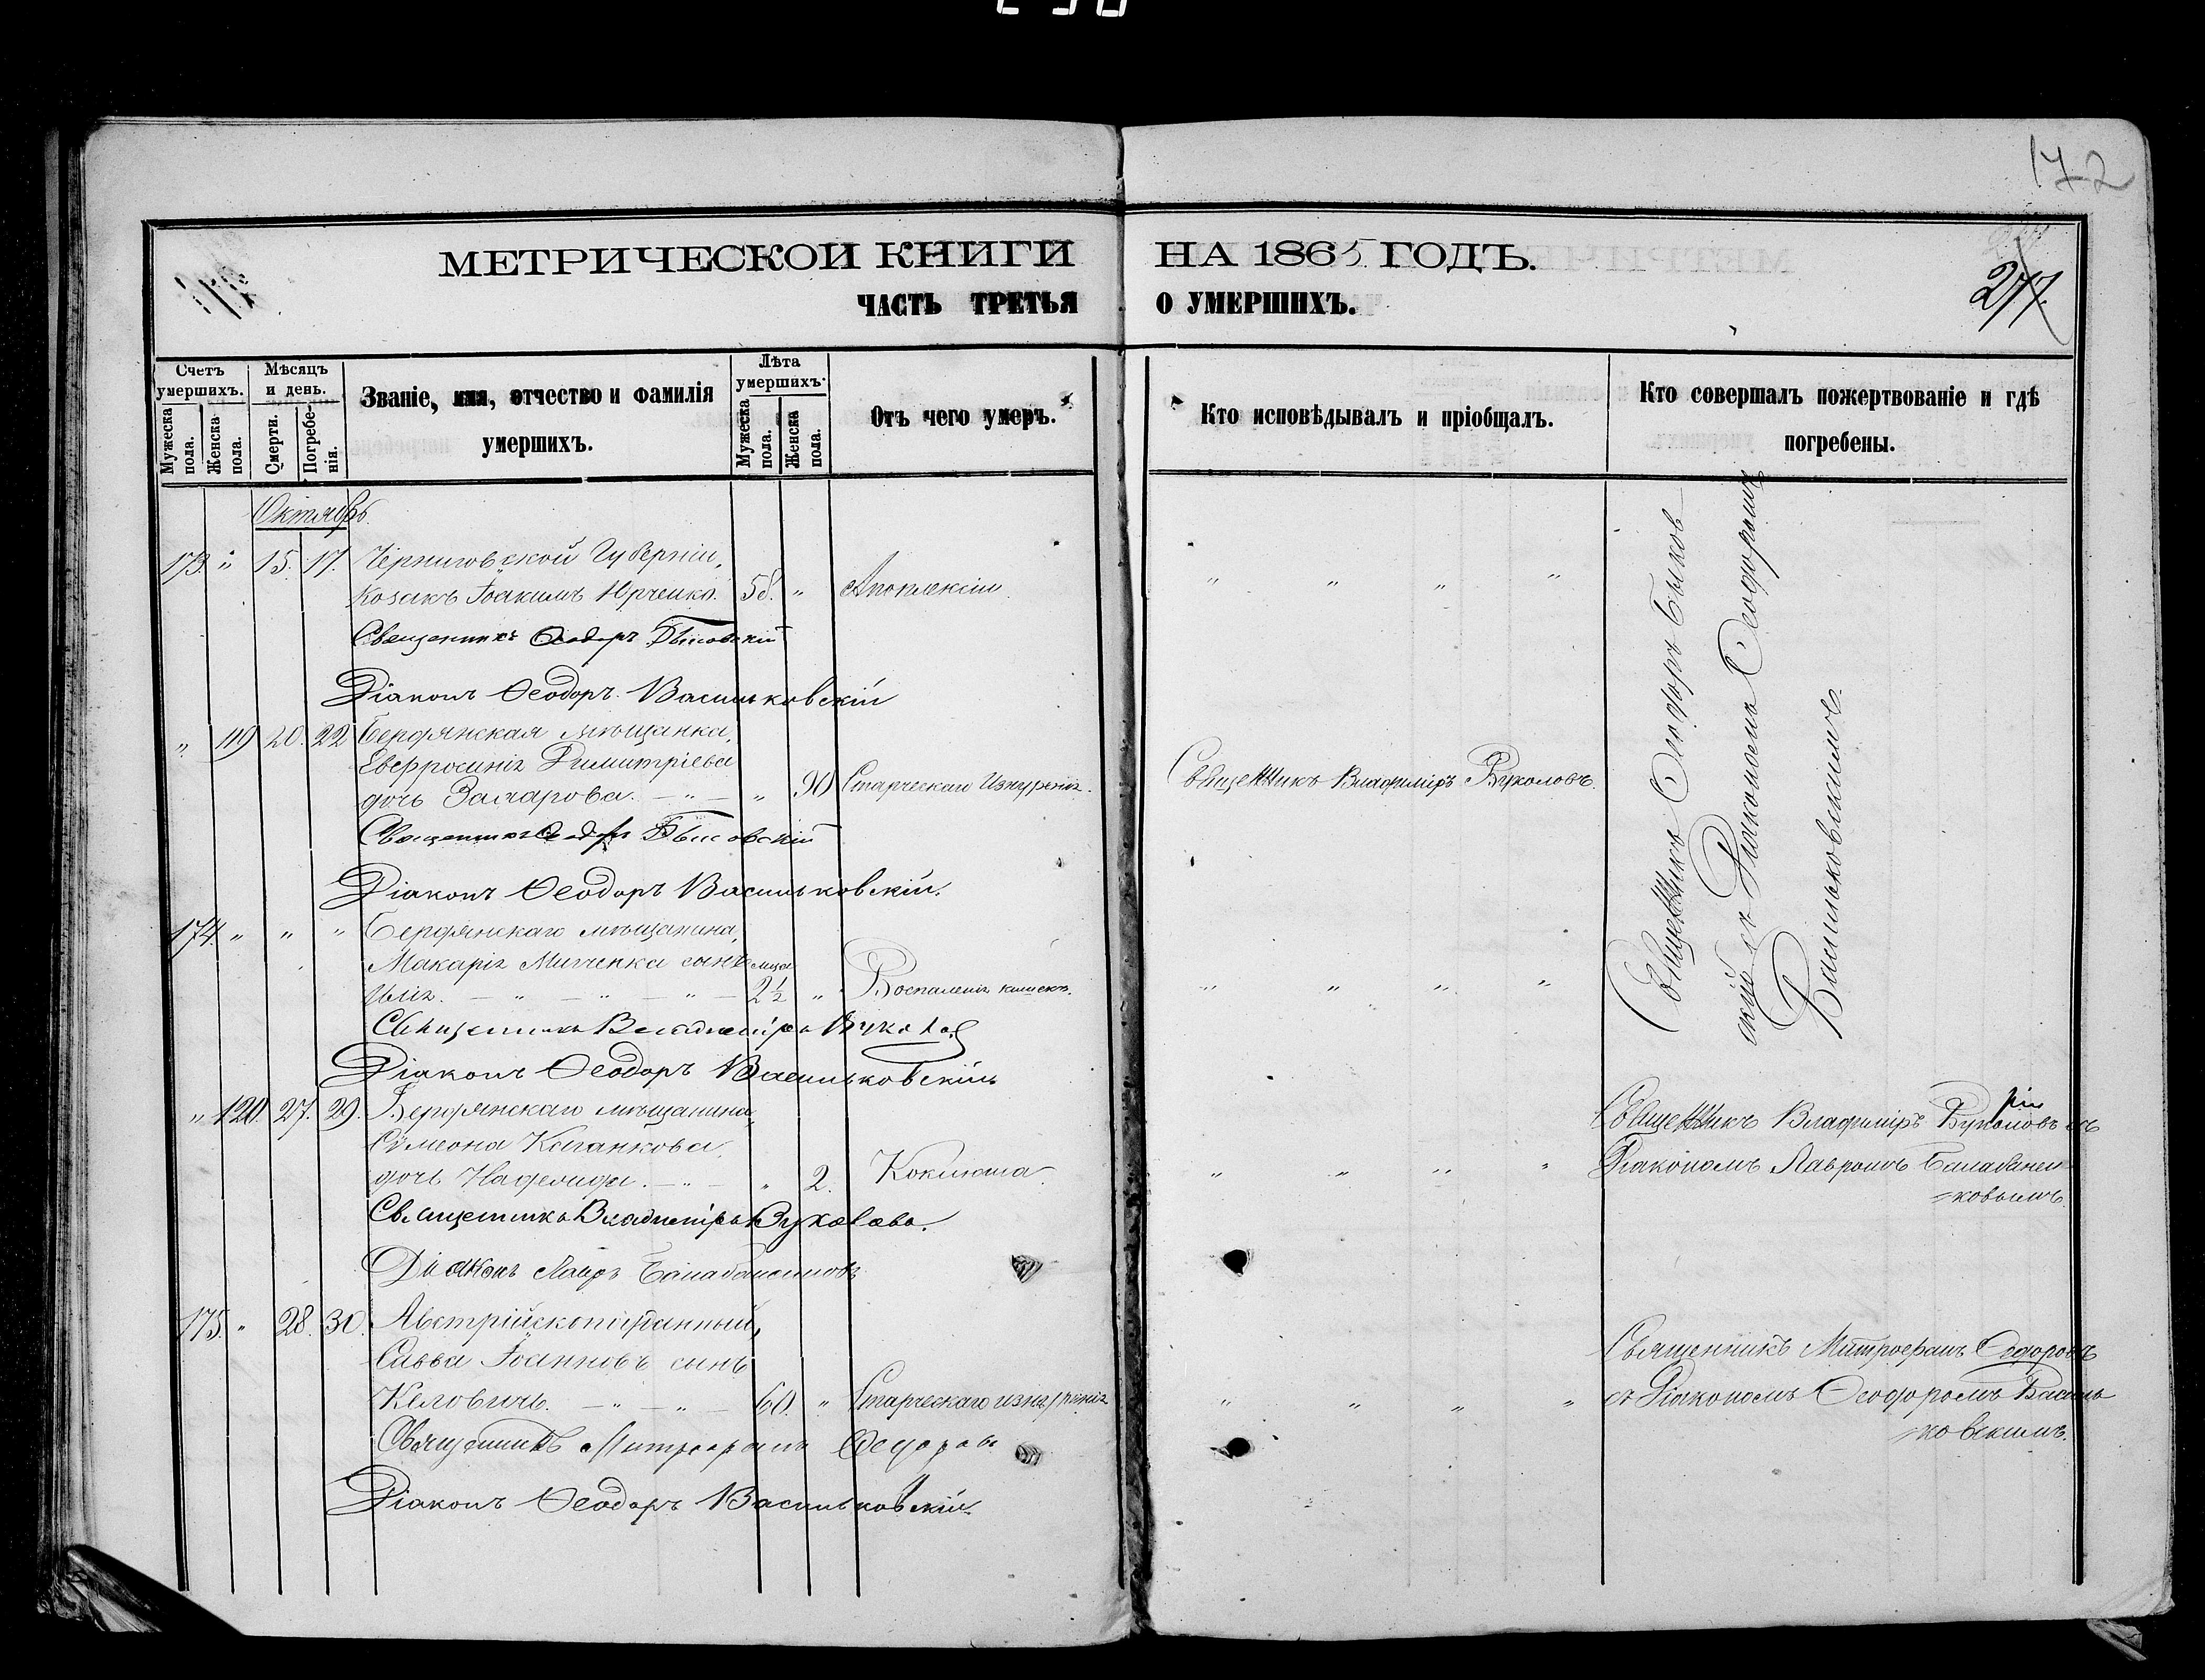 172
МЕТРИЧЕСКОЙ КНИГИ НА 1865 ГОДЪ.
277.
ЧАСТЬ ТРЕТЬЯ О УМЕРШИХЪ.
Счетъ умершихъ.
Мужеска пола.
Женска пола.
Мѣсяцъ и день.
Смерти.
Погребенія.
Званіе, имя, отчество и фамилія
умершихъ.
Лѣта умершихъ.
Мужеска пола.
Женска пола.
Отъ чего умеръ.
Кто исповѣдывалъ и пріобщалъ.
Кто совершалъ пожертвованіе и гдѣ
погребены.
Октябрь.
173. " 15. 17. Черниговской Губерніи,
Козакъ Іоакимъ Юрченко. 58. " Апоплексіи " " " "
Священникъ Ѳеодоръ Быковскій
Діаконъ Ѳеодоръ Васильковскій
" 119 20. 22 Бердянская мѣщанка,
Евфросинія Димитріева
дочь Захарова. — " — " 90 Старческаго Изнуренія. Священникъ Владиміръ Вуколовъ.
Священникъ Ѳеодоръ Быковскій
Діаконъ Ѳеодоръ Васильковскій.
Священникъ Ѳеодоръ Быков
скій съ Діакономъ Ѳеодоромъ
Васильковскимъ.
174. " " " Бердянскаго мѣщанина,
Макарія Мищенка сынъ мѣся
Илія. — " — " — " — 2½ " Воспаленія кишекъ. " " " "
Священникъ Владиміръ Вуколов
Діаконъ Ѳеодоръ Васильковскій
" 120. 27. 29. Бердянскаго мѣщанина,
Сѵмеона Каганкова,
дочь Надежда. — " — " 2. Коклюша. " " " "
Священникъ Владиміръ Вуколовъ съ
Діакономъ Лавромъ Балабанен
=ковымъ.
Священникъ Владиміръ Вуколовъ.
Діаконъ Лавръ Балабаненковъ
175. " 28. 30. Австрійскоподданный,
Савва Іоанновъ сынъ
Келовичь. — " — " — 60. " Старческаго изнуренія " " " "
Священникъ Митрофанъ Ѳедоровъ
съ Діакономъ Ѳеодоромъ Василь
=ковскимъ.
Священникъ Митрофанъ Ѳедоровъ
Діаконъ Ѳеодоръ Васильковскій.